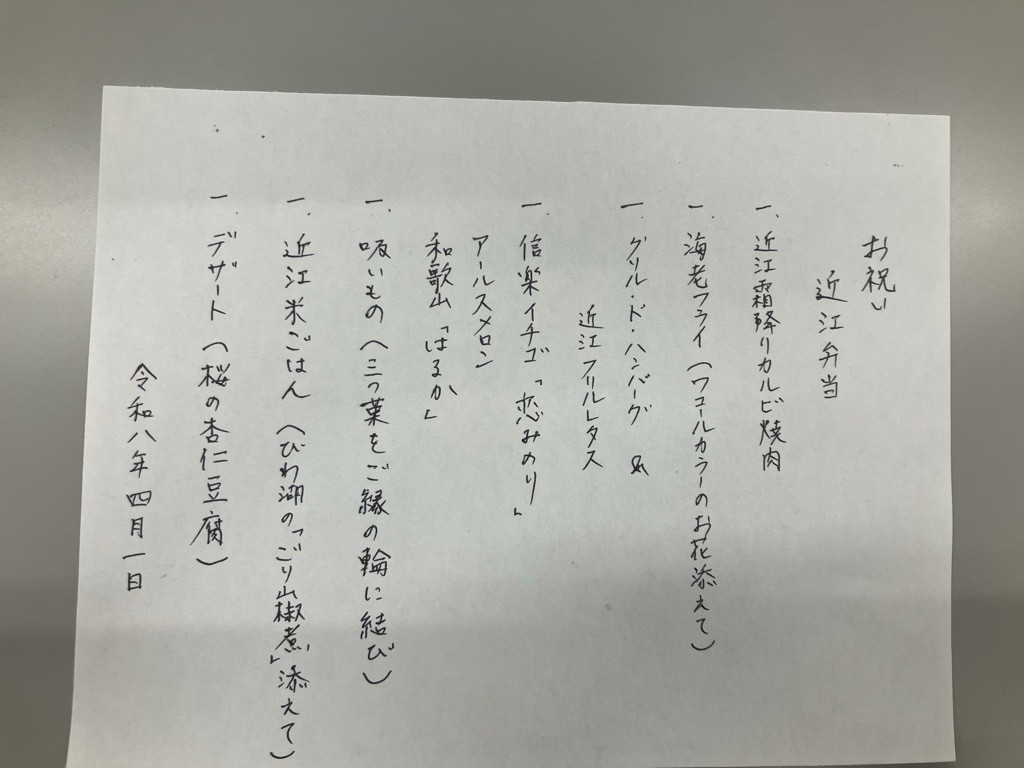 お祝い
近江弁当
一、近江霜降りカルビ焼肉
一、海老フライ（ワコールカラーのお花添えて）
一、グリル・ド・ハンバーグ &
近江フリルレタス
一、信楽イチゴ「恋みのり」
アールスメロン
和歌山「はるか」
一、吸いもの（三つ葉をご縁の輪に結び）
一、近江米ごはん（びわ湖の「ごり山椒煮」添えて）
一、デザート（桜の杏仁豆腐）
令和八年四月一日